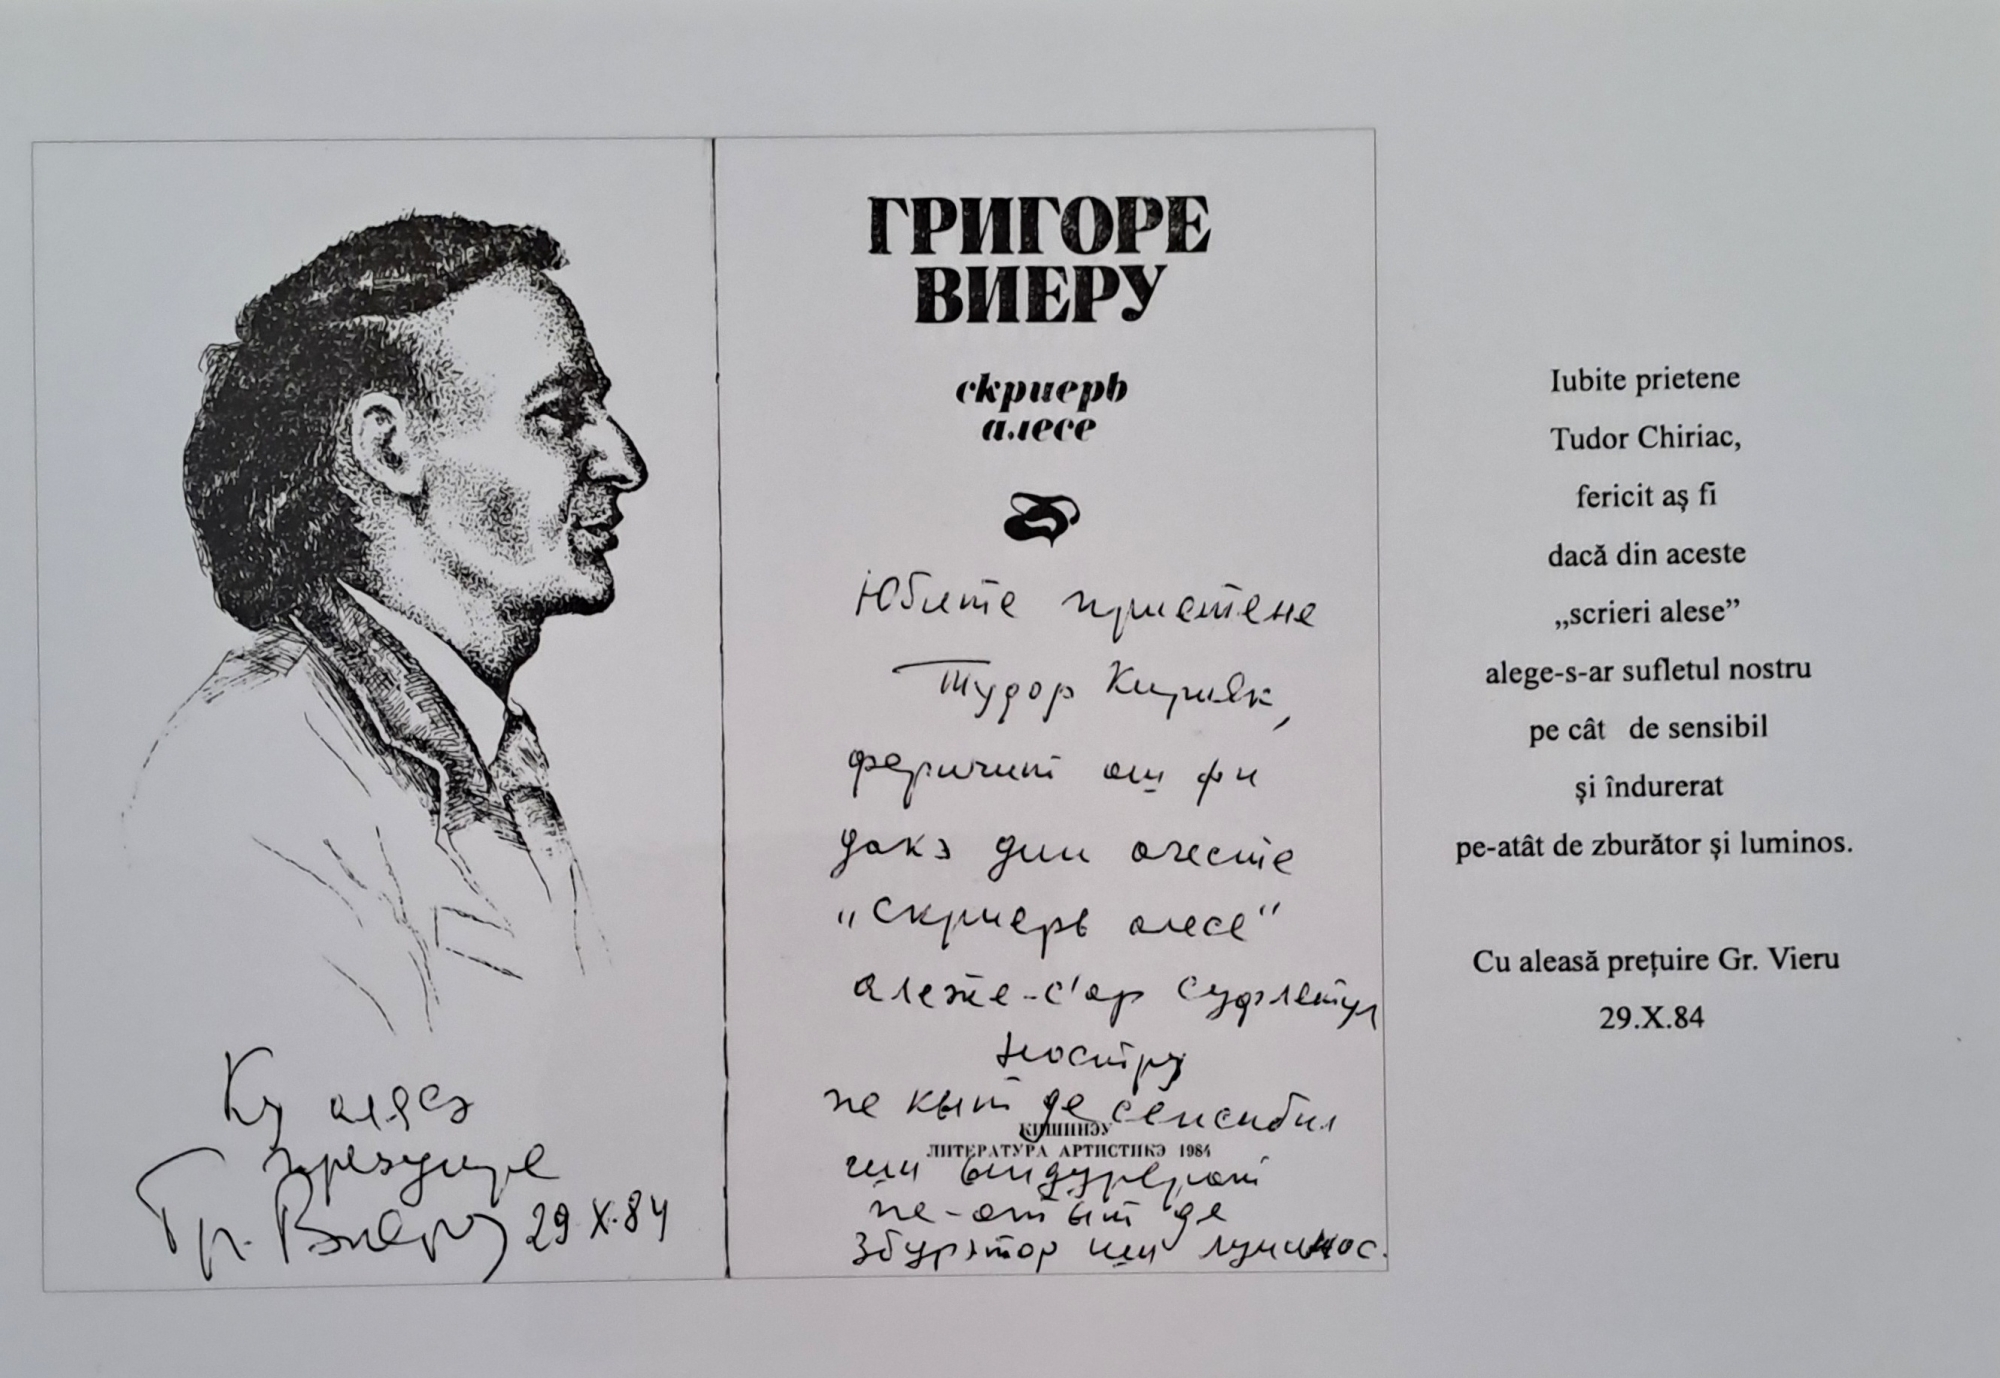 ГРИГОРЕ
ВИЕРУ
скриерь
алесе
Юбите приетене
Тудор Кирияк,
феричит аш фи
дакэ дин ачесте
„Скриерь алесе“
алеже-с'ар суфлетул
ностру
пе кыт де сенсибил
КИШИНЭУ
ЛИТЕРАТУРА АРТИСТИКЭ 1984
ши ындурерат
пе-атыт де
збурэтор ши луминос.
Ку алясэ
прецуире
Гр. Виеру 29.X.84
Iubite prietene
Tudor Chiriac,
fericit aş fi
dacă din aceste
„scrieri alese”
alege-s-ar sufletul nostru
pe cât de sensibil
şi îndurerat
pe-atât de zburător şi luminos.
Cu aleasă preţuire Gr. Vieru
29.X.84